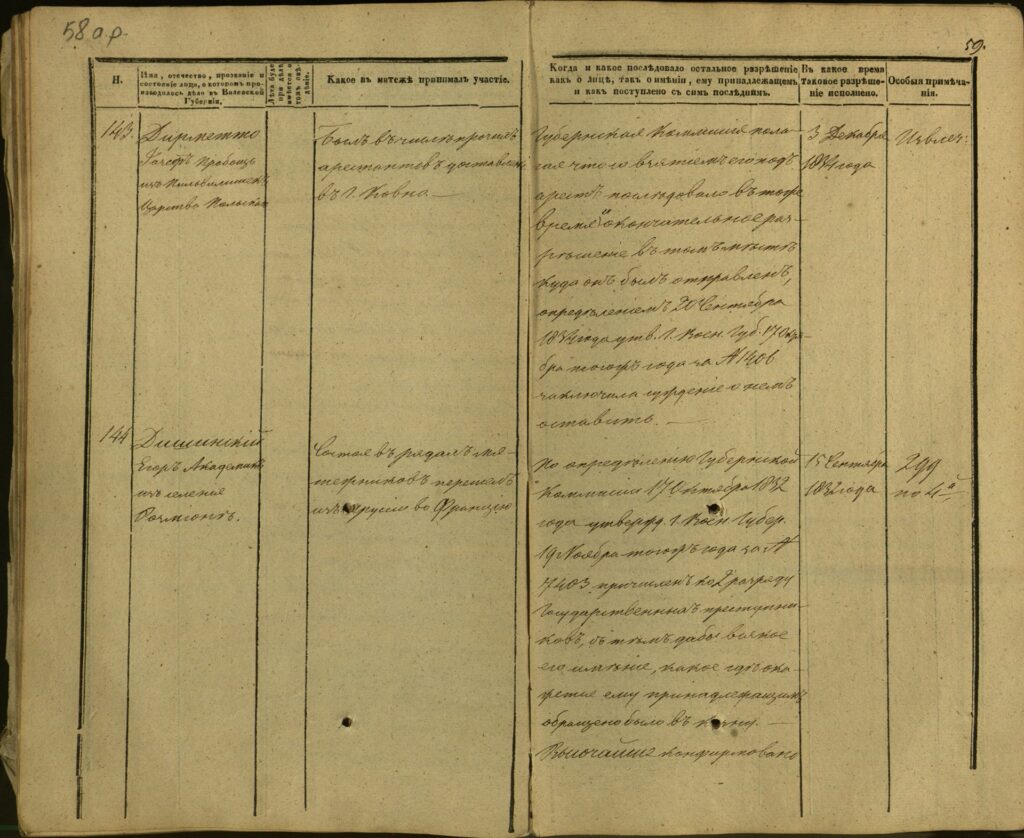 58 а.р.
59.
Н.
Имя, отечество, прозваніе и
состояніе лица, о которомъ про-
изводилось дѣло въ Виленской
Губерніи,
Какое въ мятежѣ принималъ участіе.
Когда и какое послѣдовало остальное разрѣшеніе
какъ о лицѣ, такъ о имѣніи, ему принадлежащемъ
и какъ поступлено съ симъ послѣднимъ.
Въ какое время
таковое разрѣше-
ніе исполнено.
Особыя примѣча-
нія.
143.
изъ
Царства Польскаго
Былъ въ числѣ прочихъ
арестантовъ доставленъ
въ г. Ковно.
Губернская Коммисія пола-
гая что со взятіемъ его подъ
арестъ послѣдовало въ тоже
время окончательное раз-
рѣшеніе въ томъ мѣстѣ
куда онъ былъ отправленъ,
опредѣленіемъ 20 Сентября
1834 года утв. Г. Воен. Губ. 17 Октя-
бря тогожъ года за № 1406
заключила сужденіе о немъ
оставить.
3 Декабря
1834 года
144
Дишинскій
Егоръ Академикъ
изъ имения
Состоя въ рядахъ мя-
тежниковъ перешелъ
изъ Пруссіи во Францію
По опредѣленію Губернской
Коммисіи 17 Октября 1832
года утвержд. Г. Воен. Губер.
19 Ноября тогожъ года за №
7403 причисленъ ко 2 разряду
Государственныхъ преступни-
ковъ, съ тѣмъ дабы всякое
его имѣніе, какое гдѣ ока-
жется ему принадлежащимъ
обращено было въ казну.
Высочайше конфирмовано
15 Сентября
1832 года
299
по 4й